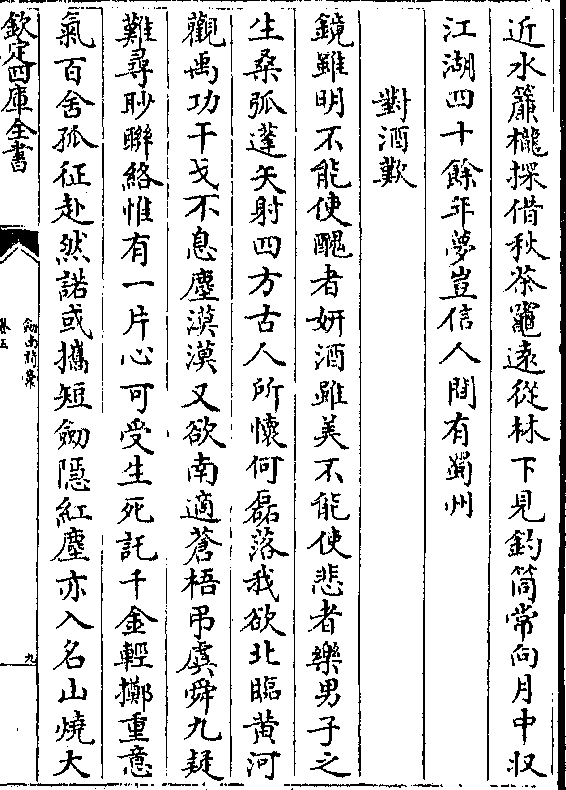 近水簾櫳探借秋茶竈遠從林下見釣筒常向月中収
江湖四十餘年夢豈信人間有蜀州
對酒歎
鏡雖明不能使醜者妍酒雖美不能使悲者樂男子之
生桑弧蓬矢射四方古人所懷何磊落我欲北臨黄河
觀禹功干戈不息塵漠漠又欲南適蒼梧弔虞舜九疑
難尋眇聯絡惟有一片心可受生死託千金輕擲重意
氣百舍孤征赴然諾或攜短劒隱紅塵亦入名山燒大
欽定四庫全書
劒南詩稾
卷五
九